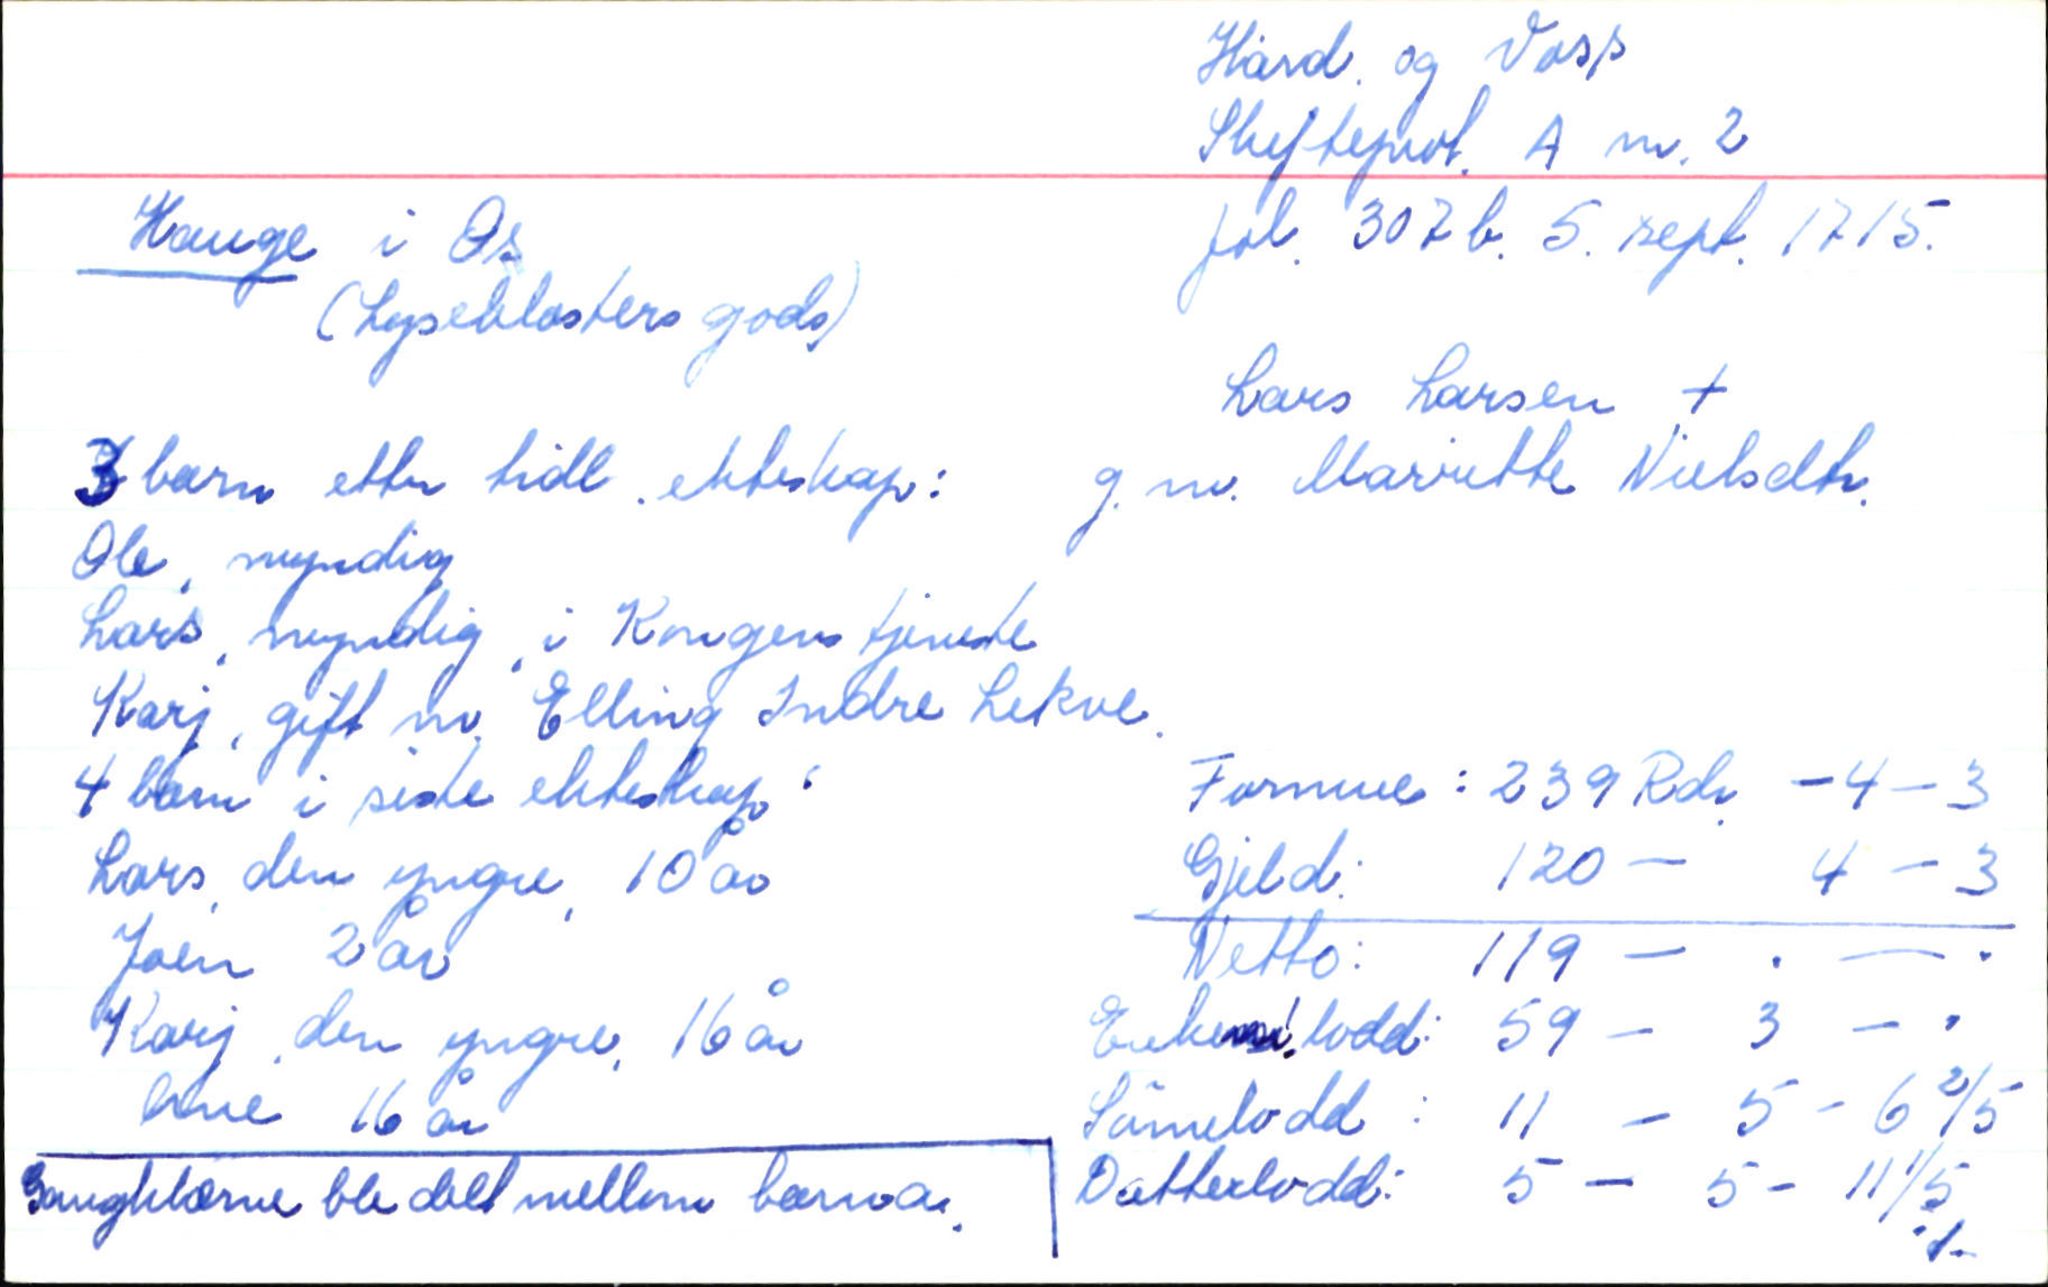 Hard. og Voss
Skifteprot. A nr. 2
fol. 307b. 5. sept. 1715.
Hauge i Os
(Lyseklosters gods)
Lars Larsen +
g. m. Marritte Nielsdtr.
3 barn etter tidl. ekteskap:
Ole, myndig
Lars, myndig, i Kongens tjeneste
Karj, gift m. Elling Indre Lekve.
4 barn i siste ekteskap:
Lars, den yngre, 10 år
Joen 2 år
Karj, den yngre, 16 år
16 år
Gangklærne ble delt mellom barna.
Formue: 239 Rdr. - 4 - 3
Gjeld: 120 - 4 - 3
Netto: 119 - . - .
Enkens lodd: 59 - 3 - .
Sønnelodd: 11 - 5 - 6 2/5
Datterlodd: 5 - 5 - 11 1/5